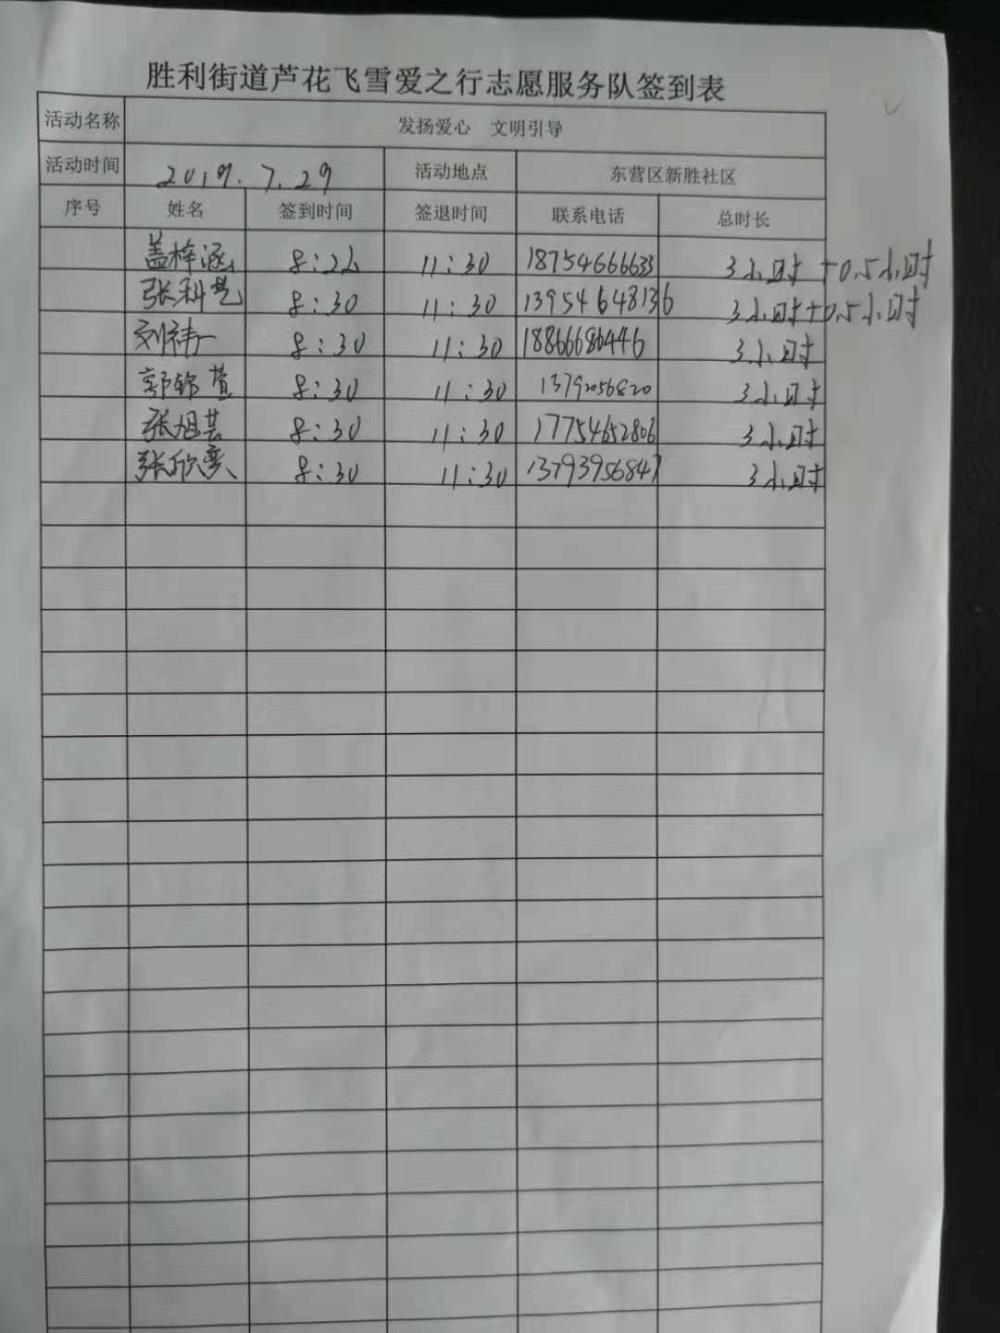 胜利街道芦花飞雪爱之行志愿服务队签到表
活动名称 发扬爱心 文明引导
活动时间 2019.7.29 活动地点 东营区新胜社区
序号 姓名 签到时间 签退时间 联系电话 总时长
盖梓涵 8:26 11:30 18754666633 3小时+0.5小时
张科艺 8:30 11:30 13954648136 3小时+0.5小时
刘祎一 8:30 11:30 18866686446 3小时
郭锦萱 8:30 11:30 13792056820 3小时
张旭芸 8:30 11:30 17754652806 3小时
张欣奕 8:30 11:30 13793956847 3小时